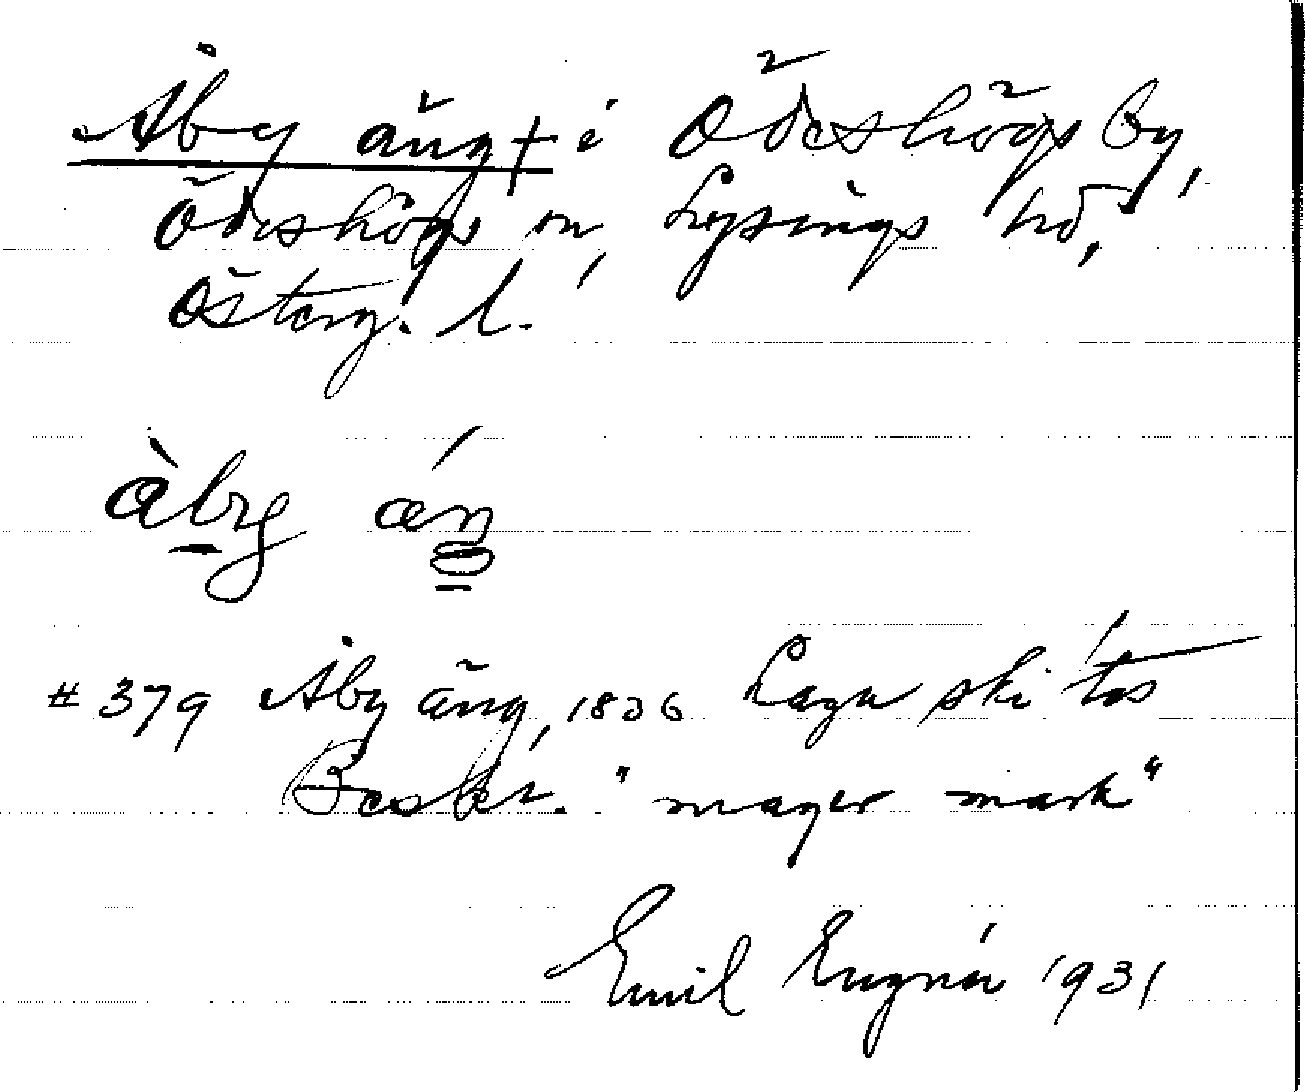 Åby äng + i Ödeshögs by,
Ödeshögs sn, Lysings hd,
Österg. l.
àby áŋ
# 379 Åby äng, 1836 Laga skiftes
Beskr. "mager mark"
Emil Engnér 1931